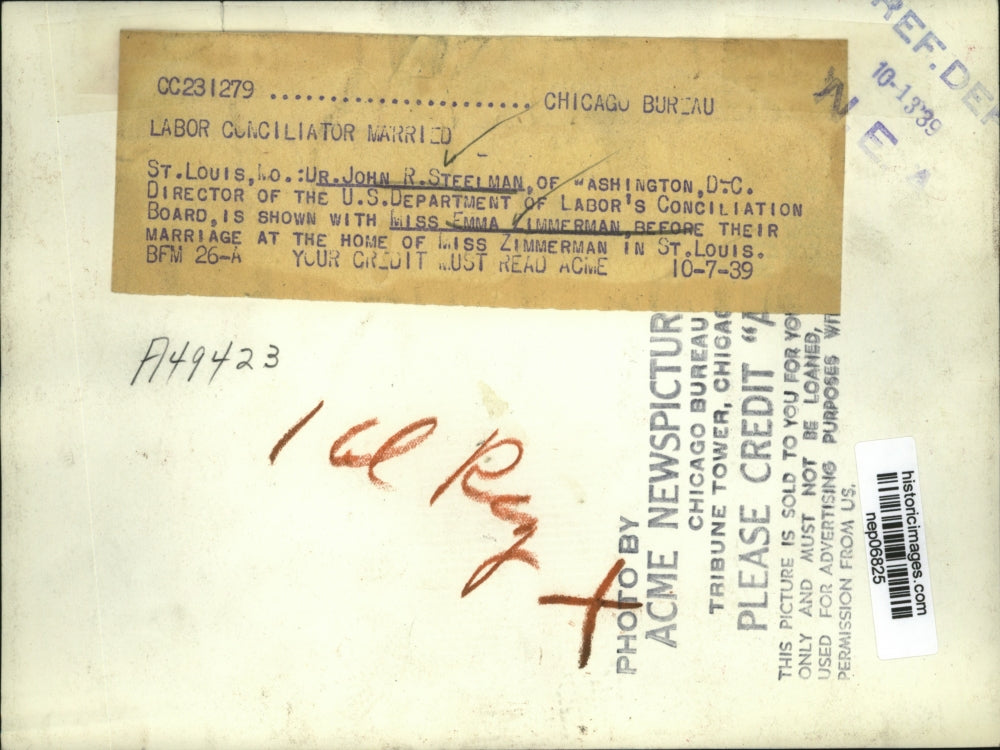 CC231279 .......................... CHICAGO BUREAU
LABOR CONCILIATOR MARRIED
ST.LOUIS,MO.:DR.JOHN R.STEELMAN,OF WASHINGTON,D.C.
DIRECTOR OF THE U.S.DEPARTMENT OF LABOR'S CONCILIATION
BOARD,IS SHOWN WITH MISS EMMA ZIMMERMAN,BEFORE THEIR
MARRIAGE AT THE HOME OF MISS ZIMMERMAN IN ST.LOUIS.
BFM 26-A YOUR CREDIT MUST READ ACME 10-7-39
REF. DEP
10-13 39
N E A
A49423
1 col Ray
PHOTO BY
ACME NEWSPICTUR
CHICAGO BUREAU
TRIBUNE TOWER, CHICAG
PLEASE CREDIT "A
THIS PICTURE IS SOLD TO YOU FOR YO
ONLY AND MUST NOT BE LOANED,
USED FOR ADVERTISING PURPOSES WIT
PERMISSION FROM US.
historicimages.com
nep06825